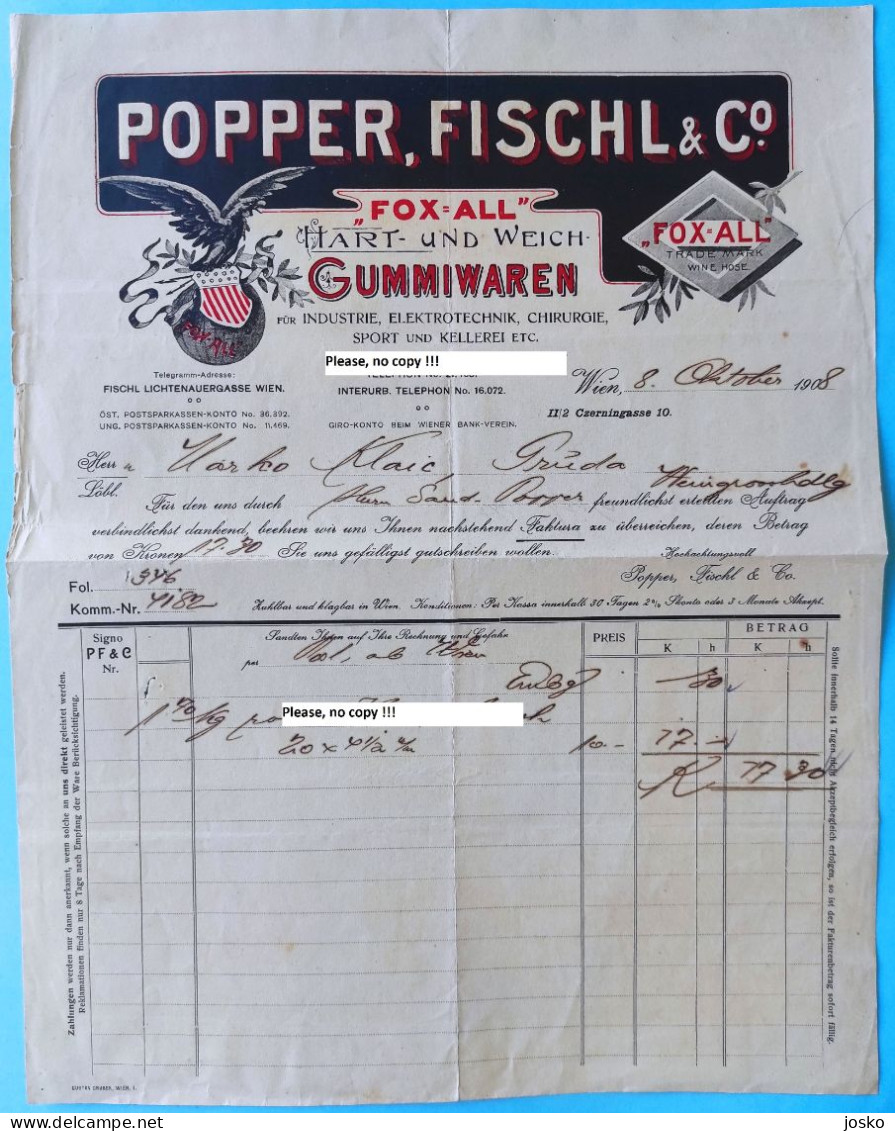 POPPER, FISCHL & Co.
„FOX=ALL"
HART- UND WEICH-
GUMMIWAREN
FÜR INDUSTRIE, ELEKTROTECHNIK, CHIRURGIE,
SPORT UND KELLEREI ETC.
„FOX=ALL"
TRADE MARK
WINE HOSE.
FOX-ALL"
Please, no copy !!!
Telegramm-Adresse:
FISCHL LICHTENAUERGASSE WIEN.
ÖST. POSTSPARKASSEN-KONTO No. 36.892.
UNG. POSTSPARKASSEN-KONTO No. 11.469.
INTERURB. TELEPHON No. 16.072.
GIRO-KONTO BEIM WIENER BANK-VEREIN.
Wien, 8. Oktober 1908
II/2 Czerningasse 10.
Herrn Marko Klaić, Gruda
Löbl. Weingrosshdlg
Für den uns durch Herrn Sand. Popper freundlichst erteilten Auftrag
verbindlichst dankend, beehren wir uns Ihnen nachstehend Faktura zu überreichen, deren Betrag
von Kronen 17.30 Sie uns gefälligst gutschreiben wollen.
Hochachtungsvoll
Popper, Fischl & Co.
Fol. 346
Komm.-Nr. 4182
Zahlbar und klagbar in Wien. Konditionen: Per Kassa innerhalb 30 Tagen 2% Skonto oder 3 Monate Akzept.
Signo
PF&C
Nr.
Sandten Ihnen auf Ihre Rechnung und Gefahr
per Post, ab Wien
PREIS
BETRAG
K h K h
Embg 30
1 70/Kg
Please, no copy !!!
20 x 4½ m/m 10.- 17.-
K 17 30
Zahlungen werden nur dann anerkannt, wenn solche an uns direkt geleistet werden.
Reklamationen finden nur 8 Tage nach Empfang der Ware Berücksichtigung.
Sollte innerhalb 14 Tagen nicht Akzeptbegleich erfolgen, so ist der Fakturenbetrag sofort fällig.
GUSTAV GRUBER, WIEN, I.
josko